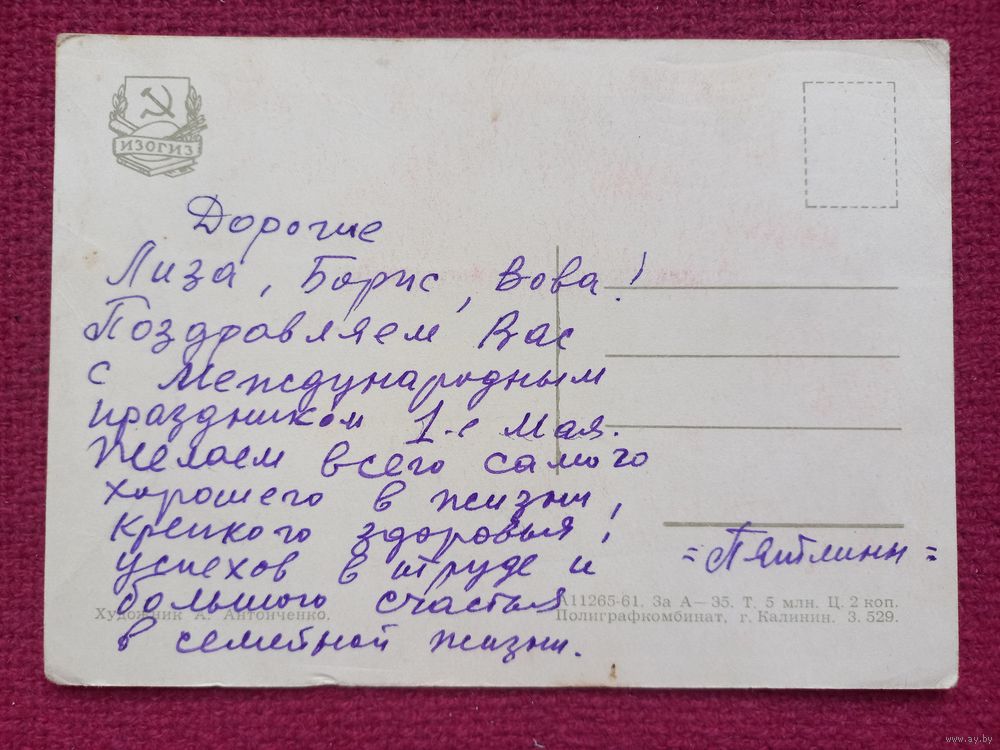 ИЗОГИЗ
Дорогие
Лиза, Борис, Вова!
Поздравляем Вас
с Международным
праздником 1-е мая.
Желаем всего самого
хорошего в жизни,
крепкого здоровья,
успехов в труде и
большого счастья
в семейной жизни.
=Пятлины=
Художник А. Антонченко.
А11265-61. За А—35. Т. 5 млн. Ц. 2 коп.
Полиграфкомбинат, г. Калинин. З. 529.
www.ay.by